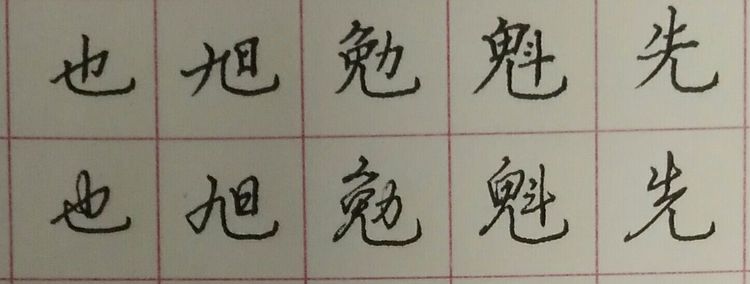 也旭勉魁先
也旭勉魁先